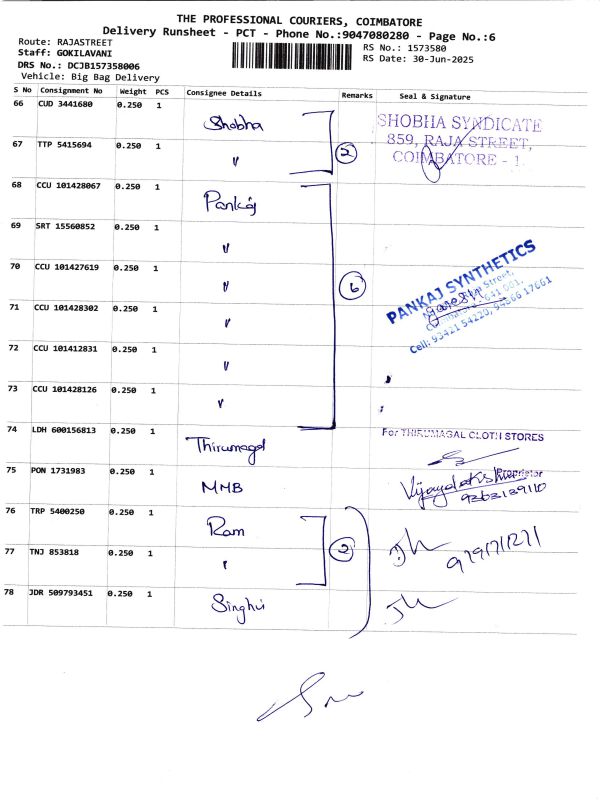 THE PROFESSIONAL COURIERS, COIMBATORE
Delivery Runsheet - PCT - Phone No.:9047080280 - Page No.:6
Route: RAJASTREET
Staff: GOKILAVANI
DRS No.: DCJB157358006
Vehicle: Big Bag Delivery
RS No.: 1573580
RS Date: 30-Jun-2025
S No Consignment No Weight PCS Consignee Details Remarks Seal & Signature
66 CUD 3441680 0.250 1 Shobha
67 TTP 5415694 0.250 1 "
2
SHOBHA SYNDICATE
859, RAJA STREET,
COIMBATORE - 1
68 CCU 101428067 0.250 1 Pankaj
69 SRT 15560852 0.250 1 "
70 CCU 101427619 0.250 1 "
6
71 CCU 101428302 0.250 1 "
72 CCU 101412831 0.250 1 "
73 CCU 101428126 0.250 1 "
PANKAJ SYNTHETICS
Street,
641 001.
Cell: 93421 54220, 94866 17661
74 LDH 600156813 0.250 1 Thirumagal
For THIRUMAGAL CLOTH STORES
Proprietor
75 PON 1731983 0.250 1 MMB
Vijayalakshmi
76 TRP 5400250 0.250 1 Ram
77 TNJ 853818 0.250 1 "
2
78 JDR 509793451 0.250 1 Singhvi